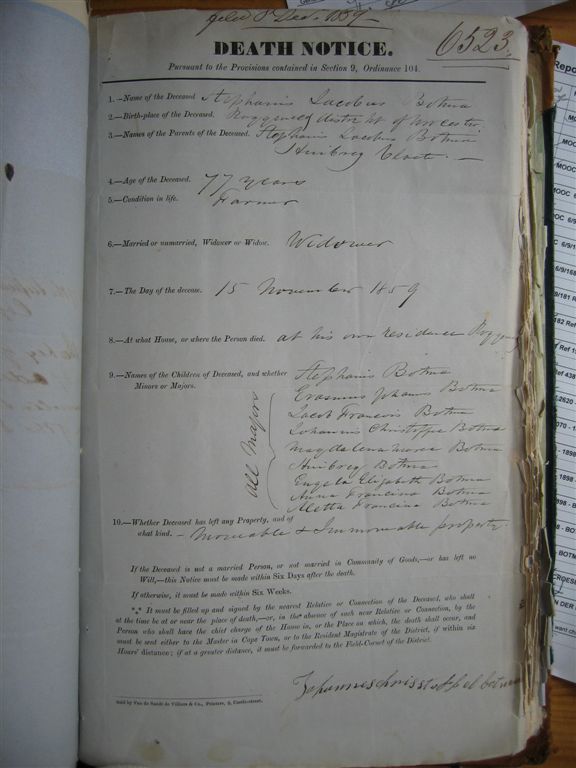 filed 8 Dec. 1859
6523.
DEATH NOTICE.
Pursuant to the Provisions contained in Section 9, Ordinance 104.
1.—Name of the Deceased Stephanis Jacobus Botma
2.—Birth-place of the Deceased. district of Worcester
3.—Names of the Parents of the Deceased. Stephanis Jacobus Botma
Huibreg
4.—Age of the Deceased. 77 years
5.—Condition in life. Farmer
6.—Married or unmarried, Widower or Widow. Widower
7.—The Day of the decease. 15 November 1859
8.—At what House, or where the Person died. at his own residence
9.—Names of the Children of Deceased, and whether Stephanis Botma
Minors or Majors. Erasmus Botma
All Majors
Jacob Francois Botma
Johannis Christoffe Botma
Magdalena Maria Botma
Huibreg Botma
Engela Elizabeth Botma
Anna Francina Botma
Aletta Francina Botma
10.—Whether Deceased has left any Property, and of
what kind. – Moveable & Immoveable property.
If the Deceased is not a married Person, or not married in Community of Goods,—or has left no
Will,—this Notice must be made within Six Days after the death.
If otherwise, it must be made within Six Weeks.
*** It must be filled up and signed by the nearest Relative or Connection of the Deceased, who shall
at the time be at or near the place of death,—or, in the absence of such near Relative or Connection, by the
Person who shall have the chief charge of the House in, or the Place on which, the death shall occur, and
must be sent either to the Master in Cape Town, or to the Resident Magistrate of the District, if within six
Hours' distance; if at a greater distance, it must be forwarded to the Field-Cornet of the District.
Sold by Van de Sandt de Villiers & Co., Printers, 5, Castle-street.